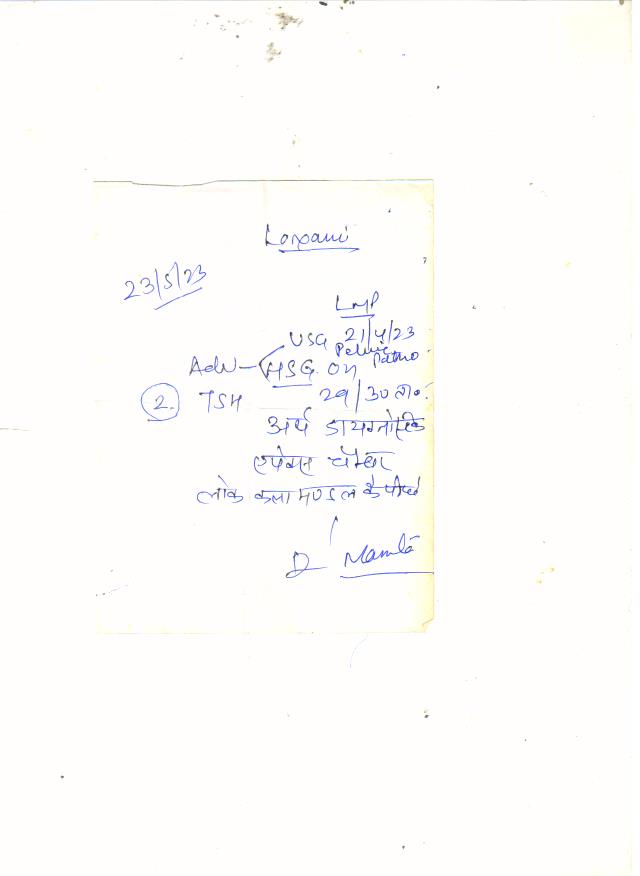 23/5/23
LMP
USG 21/4/23
Pelvic
Adv HSG. on
2. TSH 29/30 ता०
अर्थ डायग्नोस्टिक
लोक कला मण्डल के पीछे
D Mamta